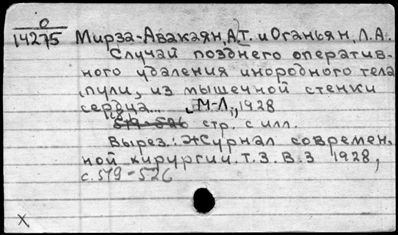 0
14275 Мирза-Авакаян, А.Т. и Оганьян, Л.А.
Случай позднего оператив-
ного удаления инородного тела
пули, из мышечной стенки
сердца... М-Л., 1928
519-526 стр. с илл.
Вырез.: Журнал современ-
ной хирургии. Т. 3. В. 3 1928,
с. 519-526
X